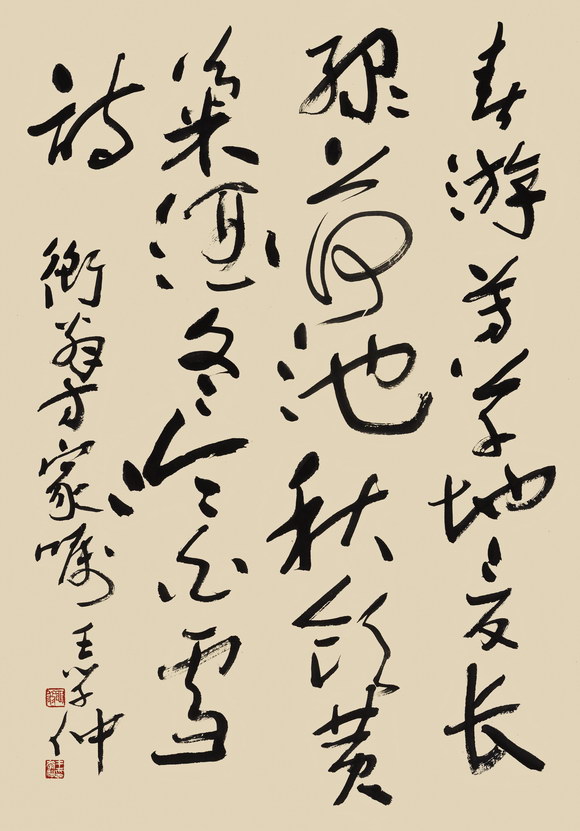 春游芳草地夏长
绿荷池秋饮黄
菊酒冬吟白雪
詩
衡翁方家嘱 王学仲